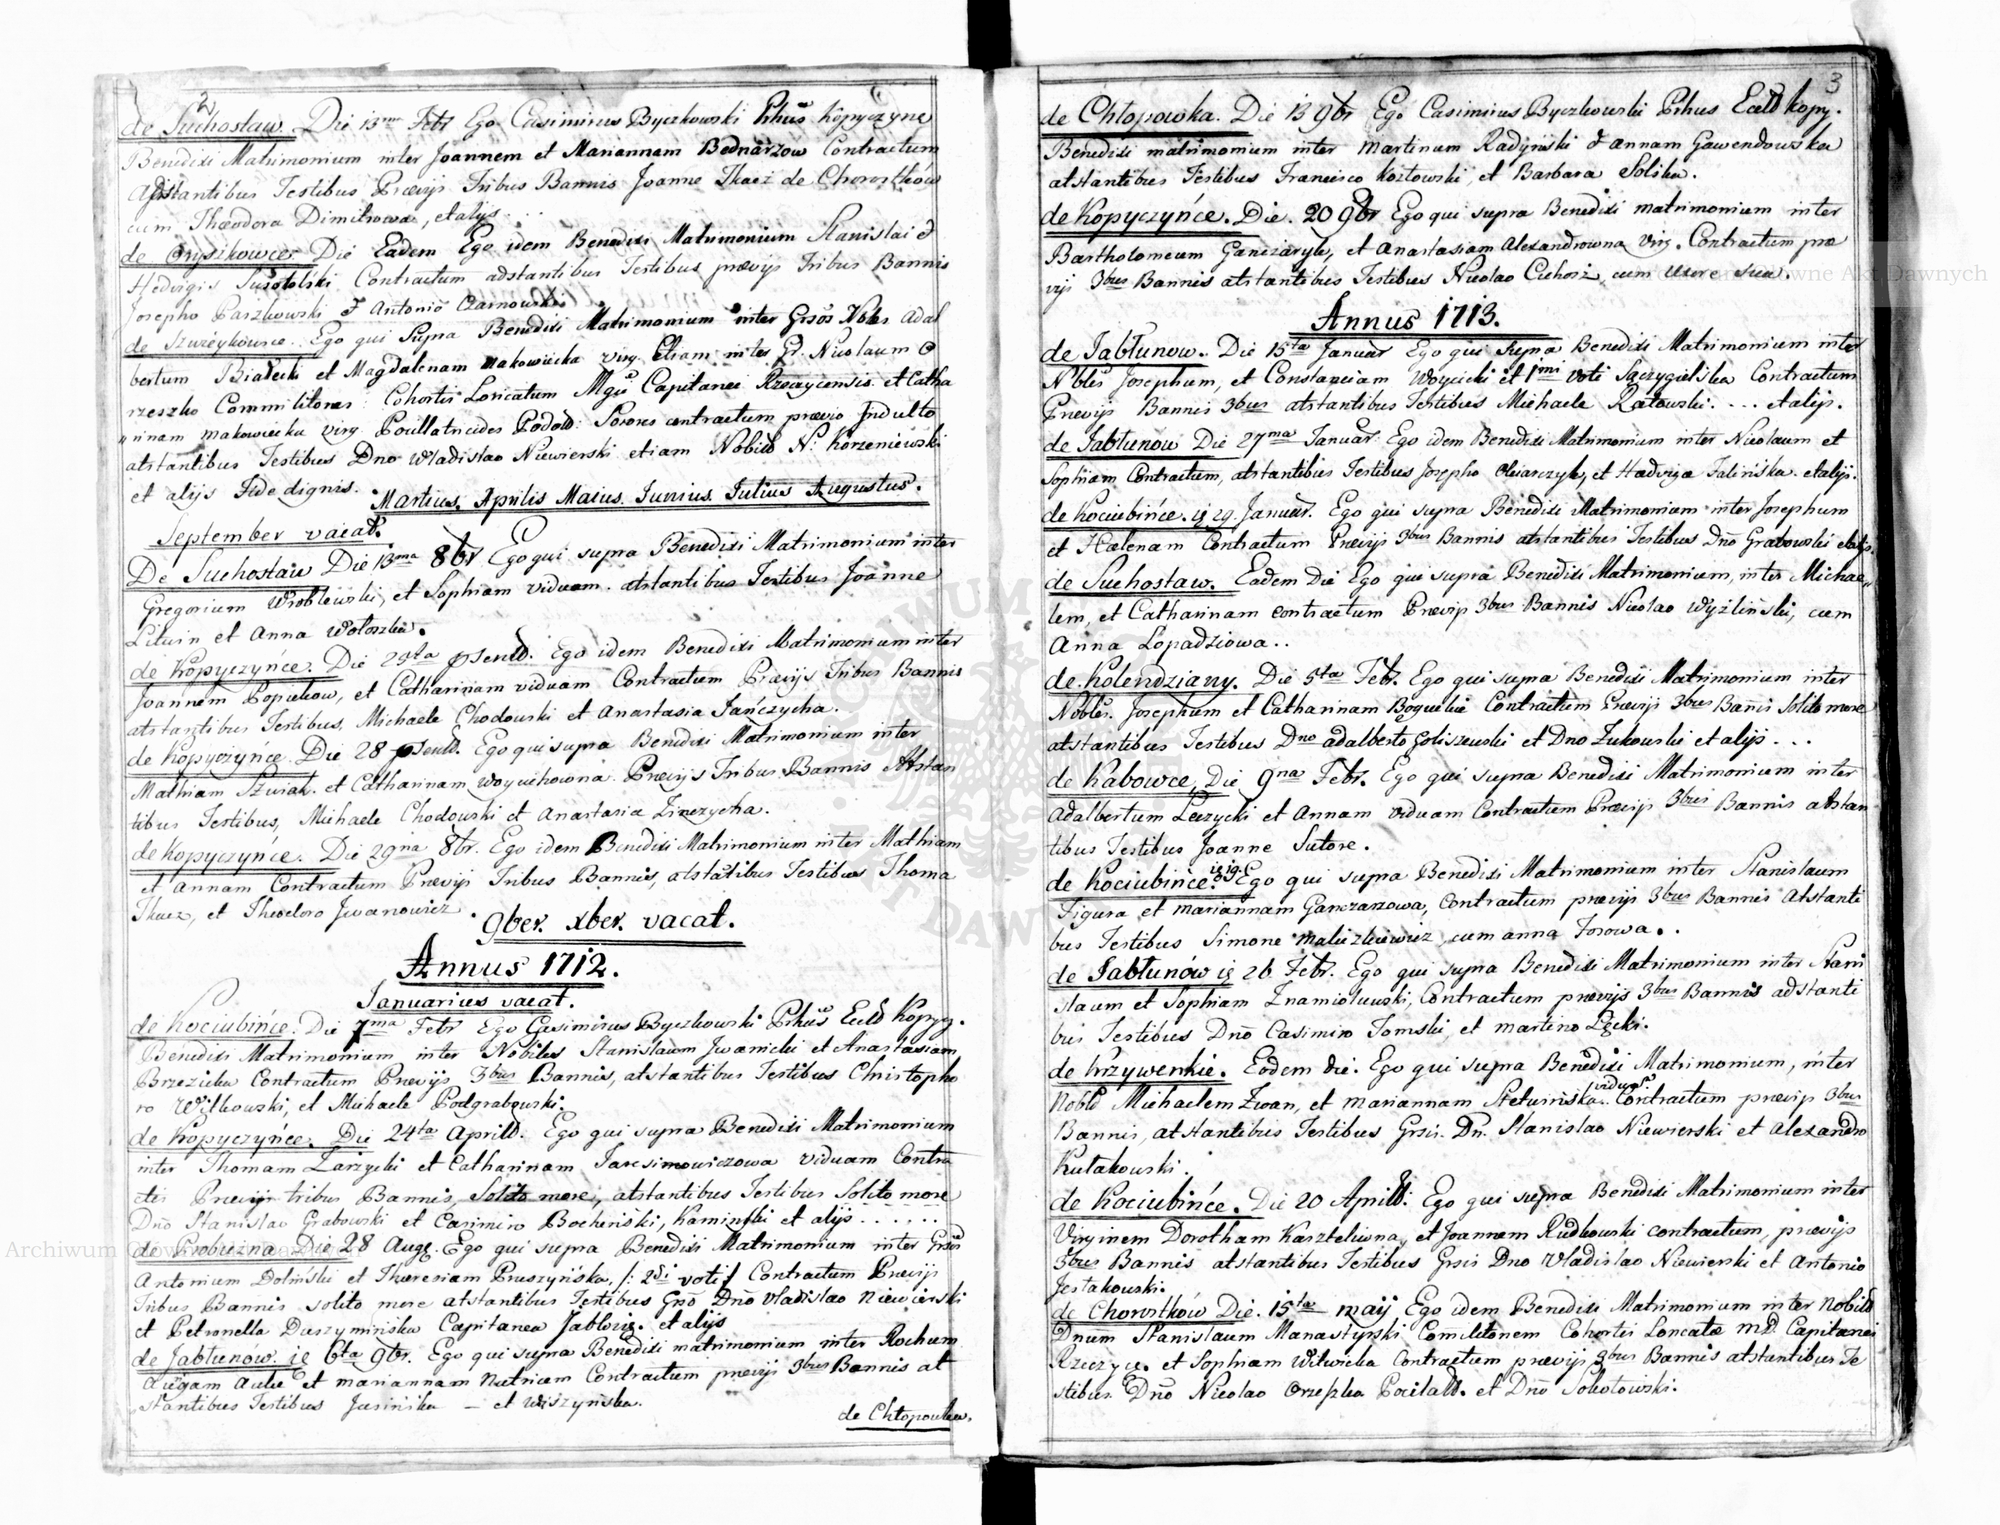 2
de Suchostaw. Die 13ma Febr Ego Casimirus Byczkowski Prhus Kopyczyne
Benedixi Matrimonium inter Joannem et Mariannam Bednarzow Contractum
Adstantibus Testibus Prævijs Tribus Bannis Joanne Tkacz de Chorostkow
cum Theodora Dimitrowa, et alijs . . .
de Oryszkowce. Die Eadem Ego idem Benedixi Matrimonium Stanislai &
Hedvigis Contractum adstantibus Testibus prævijs Tribus Bannis
Josepho Paszkowski & Antonio Czarnowski
de Ego qui Supra Benedixi Matrimonium inter Grsos Nobles Adal
bertum Białecki et Magdalenam Makowiecka virg. Etiam inter Gr. Nicolaum O
rzeszko Commilitones Cohortis Loricatum Mgci Capitanei Rzeczycensis et Catha
rinam Makowiecka virg. Podol: Sorores contractum prævio Indulto
atstantibus Testibus Dno Wladislao Niewierski etiam Nobild N: Korzeniewski
et alijs Fide dignis.
Martius. Aprilis Maius. Junius. Julius Augustus.
September vacat.
De Suchostaw Die 13ma 8br Ego qui supra Benedixi Matrimonium inter
Gregorium Wroblewski, et Sophiam viduam. atstantibus Testibus Joanne
Lituin et Anna Wołoszka.
de Kopyczyńce. Die Ego idem Benedixi Matrimonium inter
Joannem Popiekow, et Catharinam viduam Contractum Prævijs Tribus Bannis
atstantibus Testibus, Michaele Chodowski et Anastasia Jańczycha.
de Kopyczyńce. Die 28 Ego qui supra Benedixi Matrimonium inter
Mathiam Szwiak. et Catharinam Woyciehowna Prævijs Tribus Bannis Atstan
tibus Testibus, Michaele Chodowski et Anastasia
de Kopyczyńce. Die 29na 8br. Ego idem Benedixi Matrimonium inter Mathiam
et Annam Contractum Prævijs Tribus Bannis, atstātibus Testibus Thoma
Tkacz, et Theodoro Jwanowicz.
9ber. xber. vacat.
Annus 1712.
Januarius vacat.
de Kociubińce. Die 7ma Febr Ego Casimirus Byczkowski Prhus Eccld Kopyy.
Benedixi Matrimonium inter Nobiles Stanislaum Jwanicki et Anastasiam
Brzezicka Contractum Prævijs 3bus Bannis, atstantibus Testibus Christopho
ro Wilkowski, et Michaele Podgrabowski.
de Kopyczyńce. Die 24ta Aprild. Ego qui supra Benedixi Matrimonium
inter Thomam Zarzycki et Catharinam viduam Contra
ctis Prævijs tribus Bannis, Solito more, atstantibus Testibus Solito more
Dno Stanislao Grabowski et Casimiro Bocheński, Kamiński et alijs . . . . . .
de Probuzna Die 28 Augg. Ego qui supra Benedixi Matrimonium inter Grsos
Antonium Doliński et Theresiam Pruszyńska, /: 2di voti :/ Contractum Prævijs
Tribus Bannis solito more atstantibus Testibus Gsō Dnō Vladislao Niewierski
et Petronella Daszymińska Capitanea Jablow. et alijs
de Jabłunów ie 6ta 9br. Ego qui supra Benedixi matrimonium inter Rochum
et Mariannam Nutricem Contractum prævijs 3bus Bannis at
stantibus Testibus Jusińska — et Wiszyńska.
de Chłopowka.
3
de Chłopowka. Die 13 9br Ego Casimirus Byczkowski Prhus Eccld Kopy.
Benedixi matrimonium inter Martinum Radyński & Annam Gawendowska
atstantibus Testibus Francisco Kozłowski, et Barbara Solska.
de Kopyczyńce. Die. 20 9br Ego qui supra Benedixi matrimonium inter
Bartholomeum Ganczaryk, et Anastasiam Alexandrowna Virg. Contractum præ
vijs 3bus Bannis atstantibus Testibus Nicolao Cichorz, cum uxore sua.
Annus 1713.
de Jabłunow. Die 15ta Januar Ego qui Supra Benedixi Matrimonium inter
Nobles Josephum, et Constanciam Woycicki et 1mi Voti Contractum
Prævijs Bannis 3bus atstantibus Testibus Michaele Ratowski. . . . et alijs.
de Jabłunow Die 27ma Januar. Ego idem Benedixi Matrimonium inter Nicolaum et
Sophiam Contractum, atstantibus Testibus Josepho Oleiarczyk, et Hadviga Falińska. et alijs.
de Kociubińce. ie 29. Januar. Ego qui supra Benedixi Matrimoniam inter Josephum
et Hælenam Contractum Prævijs 3bus Bannis atstantibus Testibus Dnō Grabowski et alijs.
de Suchostaw. Eadem Die Ego qui supra Benedixi Matrimonium, inter Michae„
lem, et Catharinam contractum Prævijs 3bus Bannis Nicolao Wyżliński, cum
Anna Lopadziowa..
de Kolendziany. Die 5ta Febr. Ego qui supra Benedixi Matrimonium inter
Nobles. Josephum et Catharinam Contractum Prævijs 3bus Bannis Solito more
atstantibus Testibus Dno Adalberto Goliszewski et Dno Zukowski et alijs . . .
de Kabowce, Die 9na Febr. Ego qui supra Benedixi Matrimonium inter
Adalbertum Leczycki et Annam viduam Contractum Prævijs 3bus Bannis atstan
tibus Testibus Joanne Sutore.
de Kociubińce. ie 19. Ego qui supra Benedixi Matrimonium inter Stanislaum
Figura et Mariannam Ganczarzowa, Contractum prævijs 3bus Bannis Atstanti
bus Testibus Simone Maliszkiewicz, cum Anna Tosowa..
de Jabłunów ie 26 Febr. Ego qui supra Benedixi Matrimonium inter Stani
slaum et Sophiam Znamiołuwski, Contractum prævijs 3bus Bannis adstanti
bus Testibus Dnō Casimiro Tomski, et Martino Łęcki.
de Krzywenkie. Eodem die. Ego qui supra Benedixi Matrimonium, inter
Nobld Michaelem Zwan, et Mariannam viduam. Contractum prævijs 3bus
Bannis, atstantibus Testibus Grsis. Dn. Stanislao Niewierski et Alexandro
Kułakowski.
de Kociubińce. Die 20 Aprild: Ego qui supra Benedixi Matrimonium inter
Virginem Dorotham Kasztelowna, et Joannem Rudkowski contractum, prævijs
3bus Bannis atstantibus Testibus Grsis Dno Vladislao Niewierski et Antonio
Jestakowski.
de Chorostków Die. 15ta maij Ego idem Benedixi Matrimonium inter Nobild
Dnum Stanislaum Manastyrski Comilitonem Cohortis Loricatæ MD. Capitanei
Rzeczyc. et Sophiam Witwicka Contractum prævijs 3bus Bannis atstantibus Te
stibus Dnō Nicolao Orzeszka Pocilald. et Dnō Sokołowski.